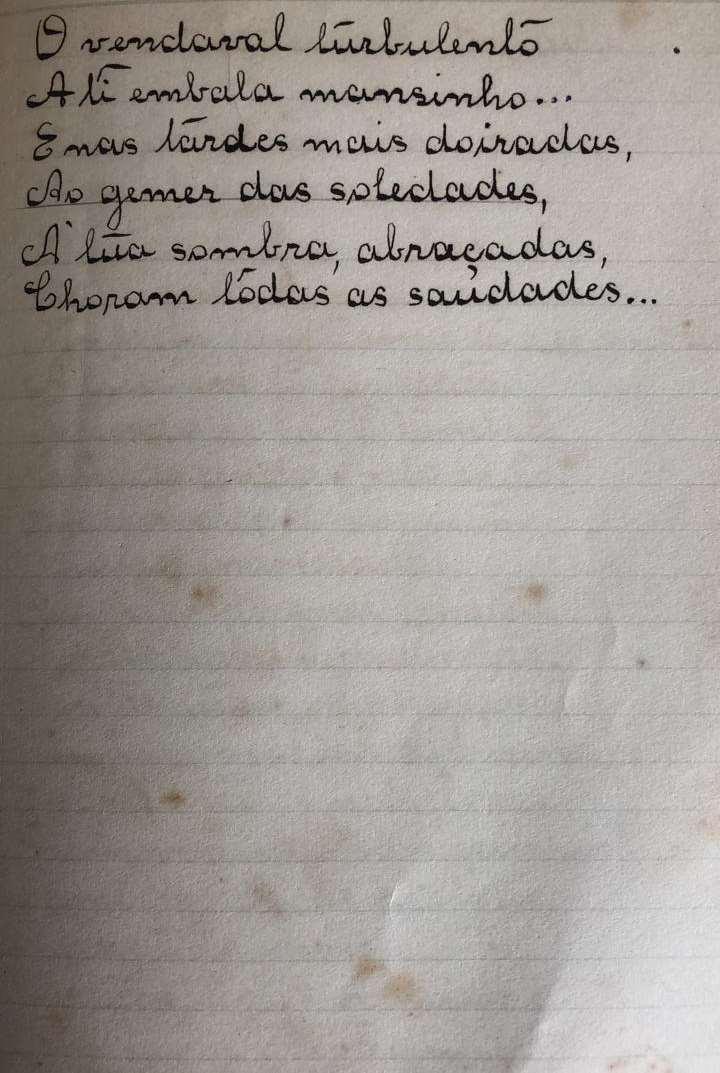 O vendaval turbulento
A ti embala mansinho...
E nas tardes mais doiradas,
Ao gemer das soledades,
A' tua sombra, abraçadas,
Choram tôdas as saùdades...